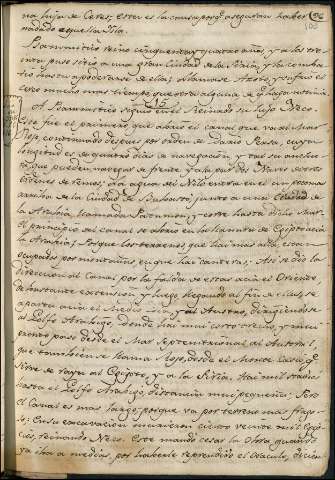 na hija de Ceres; este es la causa porq.e aseguran haber
nadado aquella Isla.
Psammitico reinó cinquenta y quatro años, y a los tre
inta puso sitio a una gran Ciudad de la Siria, y la comba
tió hasta apoderarse de ella; llamase Azoto, y sufrió es
te sitio mucho mas tiempo que otra alguna de q.e haya noticia.
A Psammitico siguió en el Reinado su hijo Neco.
Este fue el primero que abrió el canal que va al Mar
Rojo, continuado despues por orden de Dario Persa, cuya
longitud es de quatro dias de navegacion, y tal su anchu
ra que pueden navegar de frente y a la par dos Naves de tres
ordenes de remos; su agua del Nilo entra en el un poco mas
arriba de la Ciudad de Bubasto, junto a una Ciudad de
la Arabia, llamada Patumon, y este hasta dicho Mar.
El principio del canal se abrio en la llanura de Egipto acia
la Arabia; porque los terrenos que hai mas alla, estan
ocupados por montañas, en que hai canteras; Asi se dió la
direccion al Canal por la falda de estas acia el Oriente,
de bastante extension, y luego llegando al fin de ellas, se
aparta acia el Medio Dia, y al Austro, dirigiendose
al Golfo Arabigo. Donde hai mui corto trecho, y mui
pronto paso desde el Mar Septentrional al Austral,
que tambien se llama Rojo, desde el Monte Casio, q.e
sirve de raya al Egipto, y a la Siria. Hai mil stadios
hasta el Golfo Arabigo distancia mui pequeña; Pero
el Canal es mas largo, porque va por terreno mas frago
so. En su excavacion murieron ciento veinte mil Egip
cios, reinando Neco. Este mando cesar la Obra, quando
ya iba a medias, por haberle reprendido el Oraculo, dicien